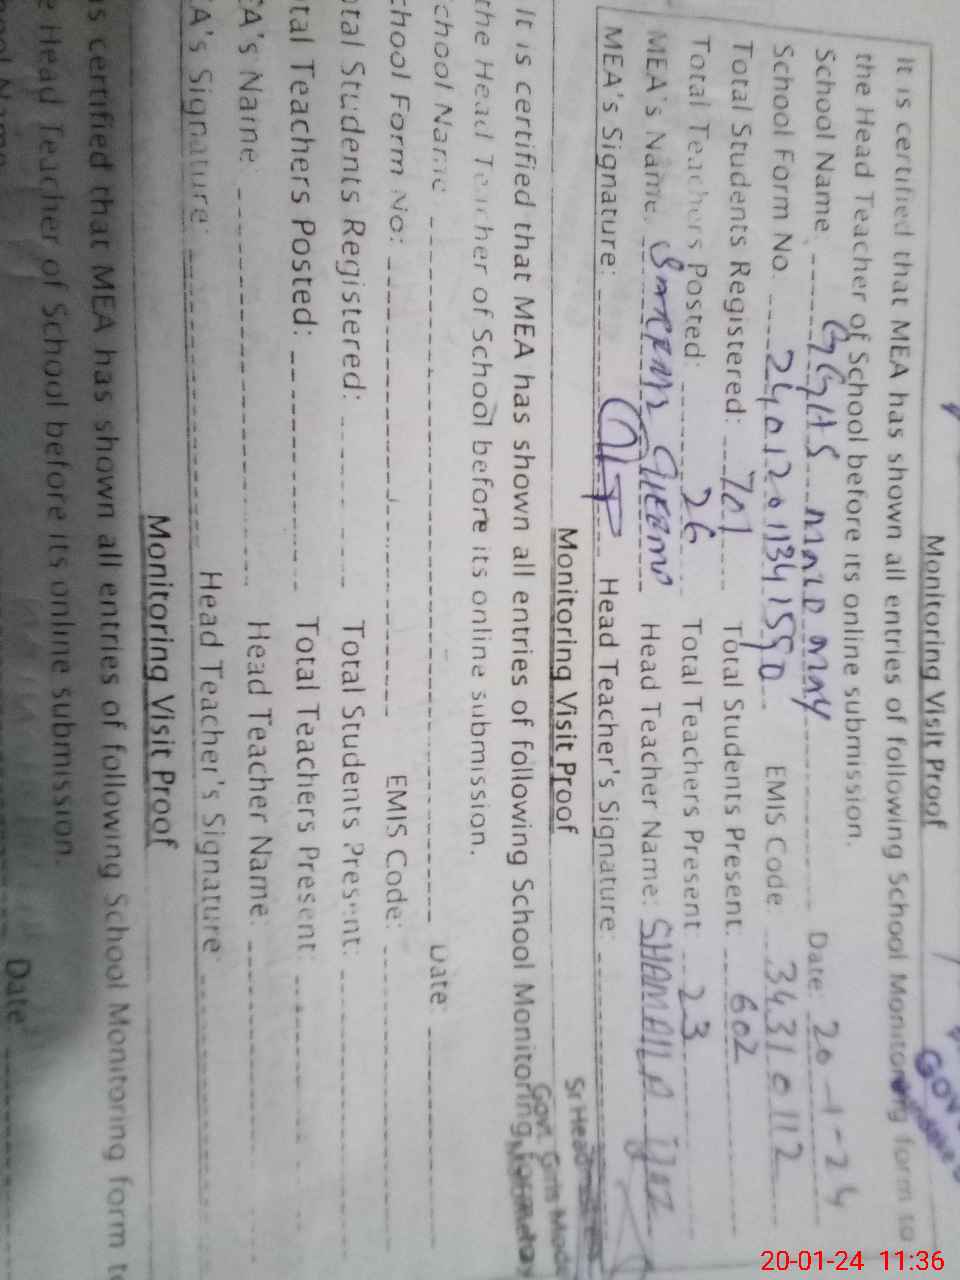 Monitoring Visit Proof
It is certified that MEA has shown all entries of following School Monitoring form to
the Head Teacher of School before its online submission.
School Name: GGHS Date: 20-1-24
School Form No. EMIS Code: 34310112
Total Students Registered: 701 Total Students Present: 602
Total Teachers Posted: 26 Total Teachers Present: 23
MEA's Name: Head Teacher Name: SHAMAILA
MEA's Signature: Head Teacher's Signature:
Monitoring Visit Proof
It is certified that MEA has shown all entries of following School Monitoring form
the Head Teacher of School before its online submission.
School Name: Date:
School Form No: EMIS Code:
Total Students Registered: Total Students Present:
Total Teachers Posted: Total Teachers Present:
EA's Name: Head Teacher Name:
EA's Signature: Head Teacher's Signature:
Monitoring Visit Proof
is certified that MEA has shown all entries of following School Monitoring form
e Head Teacher of School before its online submission.
Date:
20-01-24 11:36